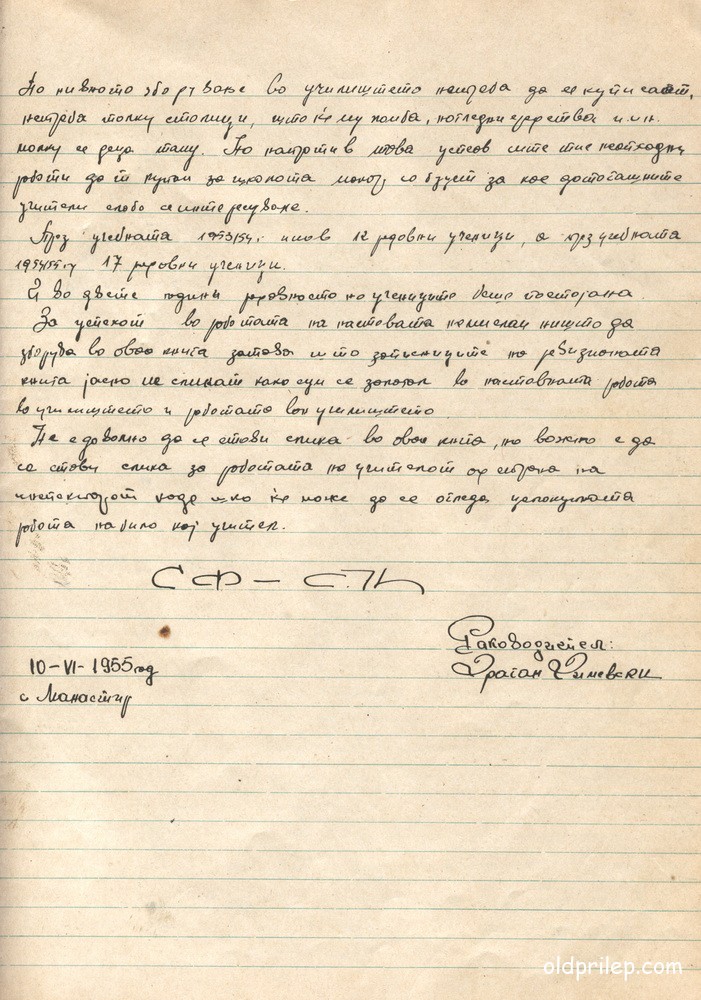 По нивното зборување во училиштето нетреба да се купи саат,
нетреба толку столици, што ќе му полба, погледни средства и.т.н.
толку се деца таму. По напротив това успеав сите тие неопходни
роботи да ги купам за школото многу со буџет за кое достогашните
учители слабо се интересуваке.
През учебната 1953/54 г. имав 12 редовни ученици, а през учебната
1954/55 г 17 редовни ученици.
И во двете години редовноста на учениците беше постојана.
За успехот во роботата на наставата немислам ништо да
зборува во оваа книга затова што записниците на ревизионата
книга јасно не сликат како сум се залагал во наставната робота
во училиштето и роботата вон училиштето.
Не е доволно да се стави слика во оваа книга, но важно е да
се стави слика за роботата на учителот од страна на
инспекторот каде што ќе може да се огледа целокупната
робота на било кој учител.
СФ – СН
Раководител:
10-VI-1955 год
Драган
с Манастир
oldprilep.com